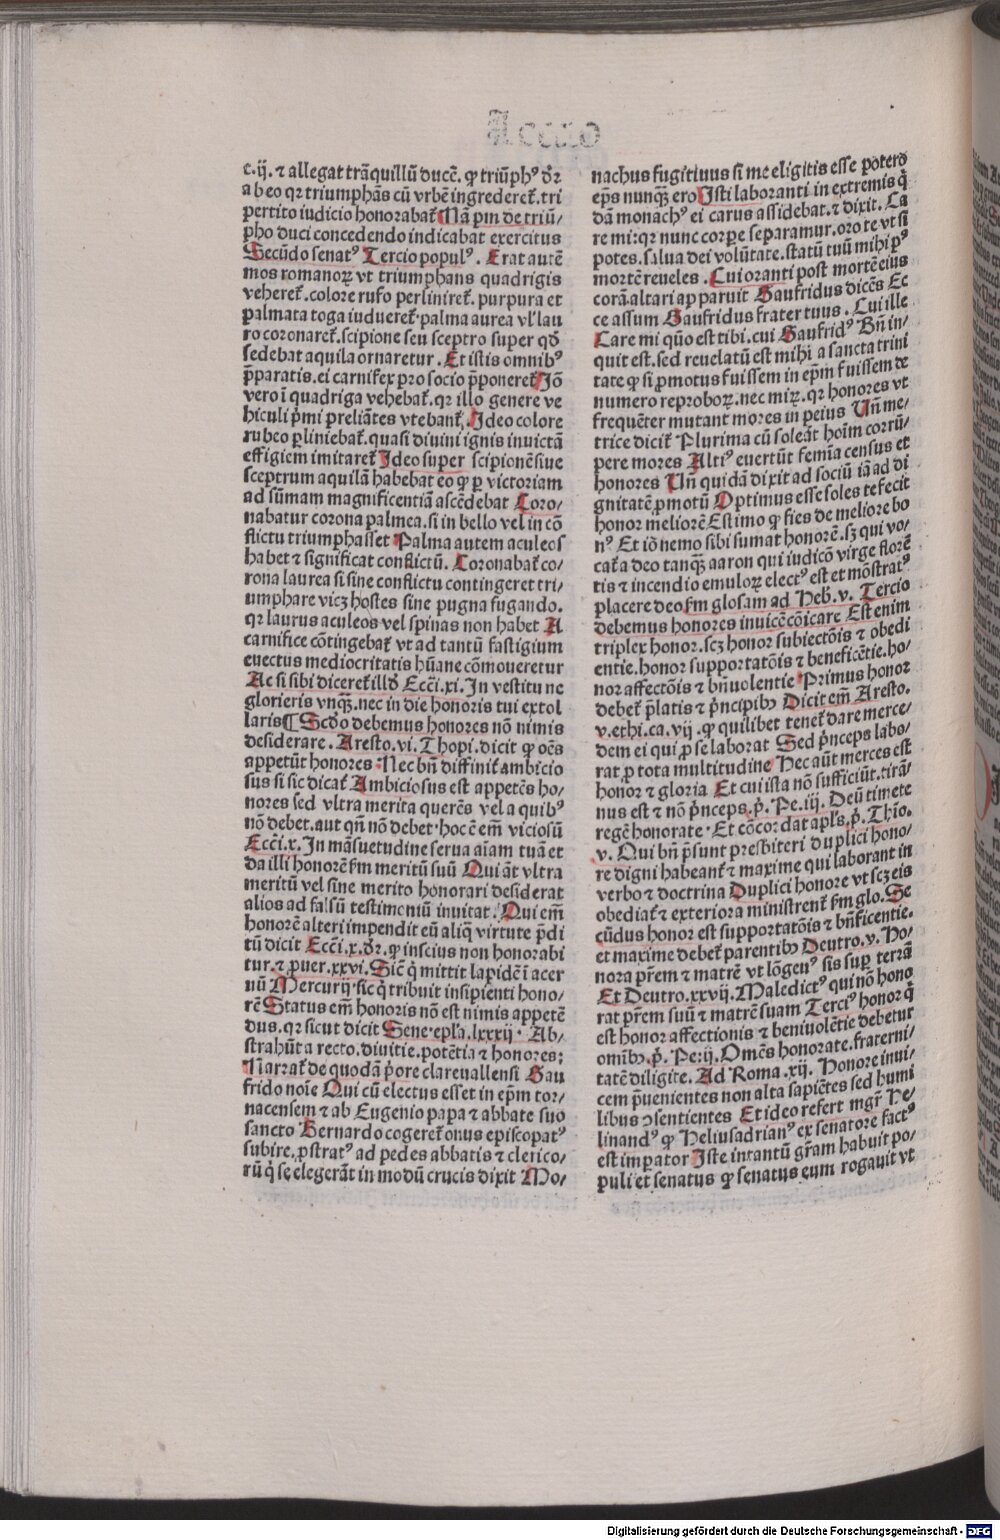 Lccio
c.ij. ⁊ allegat trãquillũ ducẽ. ꝙ triũphꝰ dr̃
a beo qꝛ triumphãs cũ vrbẽ ingrederet̃. tri
pertito iudicio honorabat̃ Nã pm̃ de triũ/
pho duci concedendo indicabat exercitus
Secũdo senatꝰ Tercio populꝰ. Erat autẽ
mos romanoꝝ vt triumphans quadrigis
veheret̃. colore rufo perliniret̃. purpura et
palmata toga induueret̃. palma aurea vl̃ lau
ro coronaret̃. scipione seu sceptro super qd̃
sedebat aquila ornaretur. Et istis omnibꝰ
p̃paratis. ei carnifex pro socio p̃poneret̃ Iõ
vero ĩ quadriga vehebat̃. qꝛ illo genere ve
hiculi p̃mi preliãtes vtebant̃. Ideo colore
rubeo perliniebat̃. quasi diuini ignis inuictã
effigiem imitaret̃ Ideo super scipionẽ siue
sceptrum aquilã habebat eo ꝙ per victoriam
ad sũmam magnificentiã ascẽdebat Coro/
nabatur corona palmea. si in bello vel in cõ
flictu triumphasset Palma autem aculeos
habet ⁊ significat conflictũ. Coronabat̃ co/
rona laurea si sine conflictu contingeret tri/
umphare vicꝫ hostes sine pugna fugando.
qꝛ laurus aculeos vel spinas non habet A
carnifice cõtingebat̃ vt ad tantũ fastigium
euectus mediocritatis hũane cõmoueretur
Ac si sibi diceret̃ illd̃ Ecci̇̃.xi. In vestitu ne
glorieris vnqꝫ. nec in die honoris tui extol
laris ¶ Scdo debemus honores nõ nimis
desiderare. Aresto.vi. Thopi. dicit ꝙ oẽs
appetũt honores Nec bñ diffinit̃ ambicio
sus si sic dicat̃ Ambiciosus est appetẽs ho/
nores sed vltra merita querẽs vel a quibꝰ
nõ debet. aut qñ nõ debet. hoc em̃ viciosũ
Ecci̇̃.x. In mãsuetudine serua aĩam tuã et
da illi honorẽ fm̃ meritũ suũ Qui ãt vltra
meritũ vel sine merito honorari desiderat
alios ad falsũ testimoniũ inuitat. Qui em̃
honorẽ alteri impendit eũ aliq̃ virtute p̃di
tũ dicit Ecci̇̃.x. dr̃. ꝙ inscius non honorabi
tur. ⁊ prouer.xxvi. Sic̃ q̃ mittit lapidẽ ĩ acer
uũ Mercurij. sic q̃ tribuit insipienti hono/
rẽ Status em̃ honoris nõ est nimis appetẽ
dus. qꝛ sicut dicit Sene. epl̃a.lxxxij. Ab/
strahũt a recto. diuitie. potẽtia ⁊ honores:
Narrat̃ de quodã p̃ore clareuallensi Gau
frido noĩe Qui cũ electus esset in ep̃m tor/
nacensem ⁊ ab Eugenio papa ⁊ abbate suo
sancto Bernardo cogeret̃ onus episcopatꝰ
subire. prostratꝰ ad pedes abbatis ⁊ clerico/
rũ q̃ se elegerãt in modũ crucis dixit Mo/
nachus fugitiuus si me eligitis esse potero
ep̃s nunqꝫ ero Isti laboranti in extremis q̃
dã monachꝰ ei carus assidebat. ⁊ dixit. Ca
re mi: qꝛ nunc corpe separamur. oro te vt si
potes. salua dei volũtate. statũ tuũ mihi pꝰ
mortẽ reueles. Cui oranti post mortẽ eius
corã altari apparuit Gaufridus dicẽs Ec
ce assum Gaufridus frater tuus. Cui ille
Care mi quõ est tibi. cui Gaufridꝰ Bñ in/
quit est. sed reuelatũ est mihi a sancta trini
tate ꝙ si promotus fuissem in ep̃m fuissem de
numero reproboꝝ. nec miꝝ. qꝛ honores vt
frequẽter mutant mores in peius Vñ me/
trice dicit̃ Plurima cũ soleãt hoĩm corrũ/
pere mores Altiꝰ euertũt femĩa census et
honores Vñ quidã dixit ad sociũ iã ad di
gnitatẽ promotũ Optimus esse soles te fecit
honor meliorẽ Estimo ꝙ fies de meliore bo
nꝰ Et iõ nemo sibi sumat honorẽ. sꝫ qui vo/
cat̃ a deo tanqꝫ aaron qui iudicõ virge florẽ
tis ⁊ incendio emuloꝝ electꝰ est et mõstratꝰ
placere deo fm̃ glosam ad Heb̃.v. Tercio
debemus honores inuicẽ cõicare Est enim
triplex honor. scꝫ honor subiectõis ⁊ obedi
entie. honor supportatõis ⁊ beneficẽtie. ho/
nor affectõis ⁊ bñuolentie Primus honor
debet̃ p̃latis ⁊ p̃ncipibꝰ Dicit em̃ Aresto.
v. ethi. ca.vij. ꝙ quilibet tenet̃ dare merce/
dem ei qui pro se laborat Sed p̃nceps labo/
rat pro tota multitudine Hec aũt merces est
honor ⁊ gloria Et cui ista nõ sufficiũt. tirã/
nus est ⁊ nõ p̃nceps. p̃. Pe.iij. Deũ timete
regẽ honorate. Et cõcordat apl̃s. p̃. Thio.
v. Qui bñ p̃sunt presbiteri duplici hono/
re digni habeant̃ ⁊ maxime qui laborant in
verbo ⁊ doctrina Duplici honore vt scꝫ eis
obediat̃ ⁊ exteriora ministrent̃ fm̃ glo. Se
cũdus honor est supportatõis ⁊ bñficentie.
et maxime debet̃ parentibꝰ Deutro.v. Ho/
nora pr̃em ⁊ matrẽ vt lõgeuꝰ sis sup̃ terrã
Et Deutro.xxvij. Maledictꝰ qui nõ hono
rat pr̃em suũ ⁊ matrẽ suam Terciꝰ honor q̃
est honor affectionis ⁊ beniuolẽtie debetur
omĩbꝰ. p̃. Pe:ij. Omẽs honorate. fraterni/
tatẽ diligite. Ad Roma.xij. Honore inui/
cem p̃uenientes non alta sapiẽtes sed humi
libus ↄsentientes Et ideo refert mgr̃ He/
linandꝰ ꝙ Helius adrianꝰ ex senatore factꝰ
est imperator Iste in tantũ gr̃am habuit po/
puli et senatus ꝙ senatus eum rogauit vt
Digitalisierung gefördert durch die Deutsche Forschungsgemeinschaft - DFG